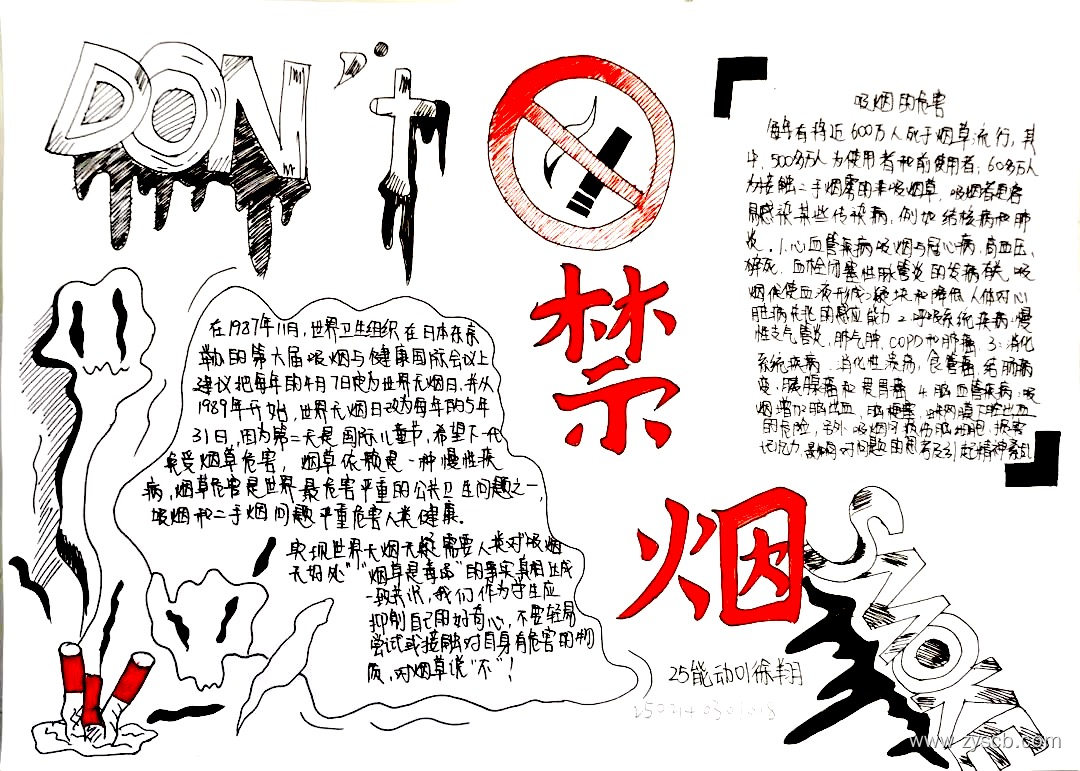 DON'T
禁
烟
SMOKE
在1987年11月,世界卫生组织在日本东京
举办的第六届吸烟与健康国际会议上
建议把每年的4月7日定为世界无烟日,并从
1989年开始,世界无烟日改为每年的5年
31日,因为第二天是国际儿童节,希望下一代
免受烟草危害,烟草依赖是一种慢性疾
病,烟草危害是世界最危害严重的公共卫生问题之一,
吸烟和二手烟问题严重危害人类健康.
实现世界无烟无疑需要人类对"吸烟
无好处""烟草是毒品"的事实真相达成
一致共识,我们作为学生应
抑制自己的好奇心,不要轻易
尝试或接触对自身有危害的物
质,对烟草说"不"!
吸烟的危害
每年有将近600万人死于烟草流行,其
中,500多万人为使用者和前使用者,60多万人
为接触二手烟雾的非吸烟草,吸烟者更容
易感染某些传染病,例如结核病和肺
炎.1.心血管疾病吸烟与冠心病.高血压、
猝死.血栓闭塞性脉管炎的发病有关,吸
烟促使血液形成凝块和降低人体对心
脏病先兆的感应能力2.呼吸系统疾病:慢
性支气管炎,肺气肿,COPD和肺癌 3:消化
系统疾病.消化性溃疡,食管癌、结肠病
变,胰腺癌和胃癌 4.脑血管疾病:吸
烟增加脑出血、脑梗塞、蛛网膜下腔出血
的危险,另外吸烟可损伤脑细胞、损害
记忆力、影响对问题的思考及引起精神紊乱
25能动01徐翔
www.zyscb.com